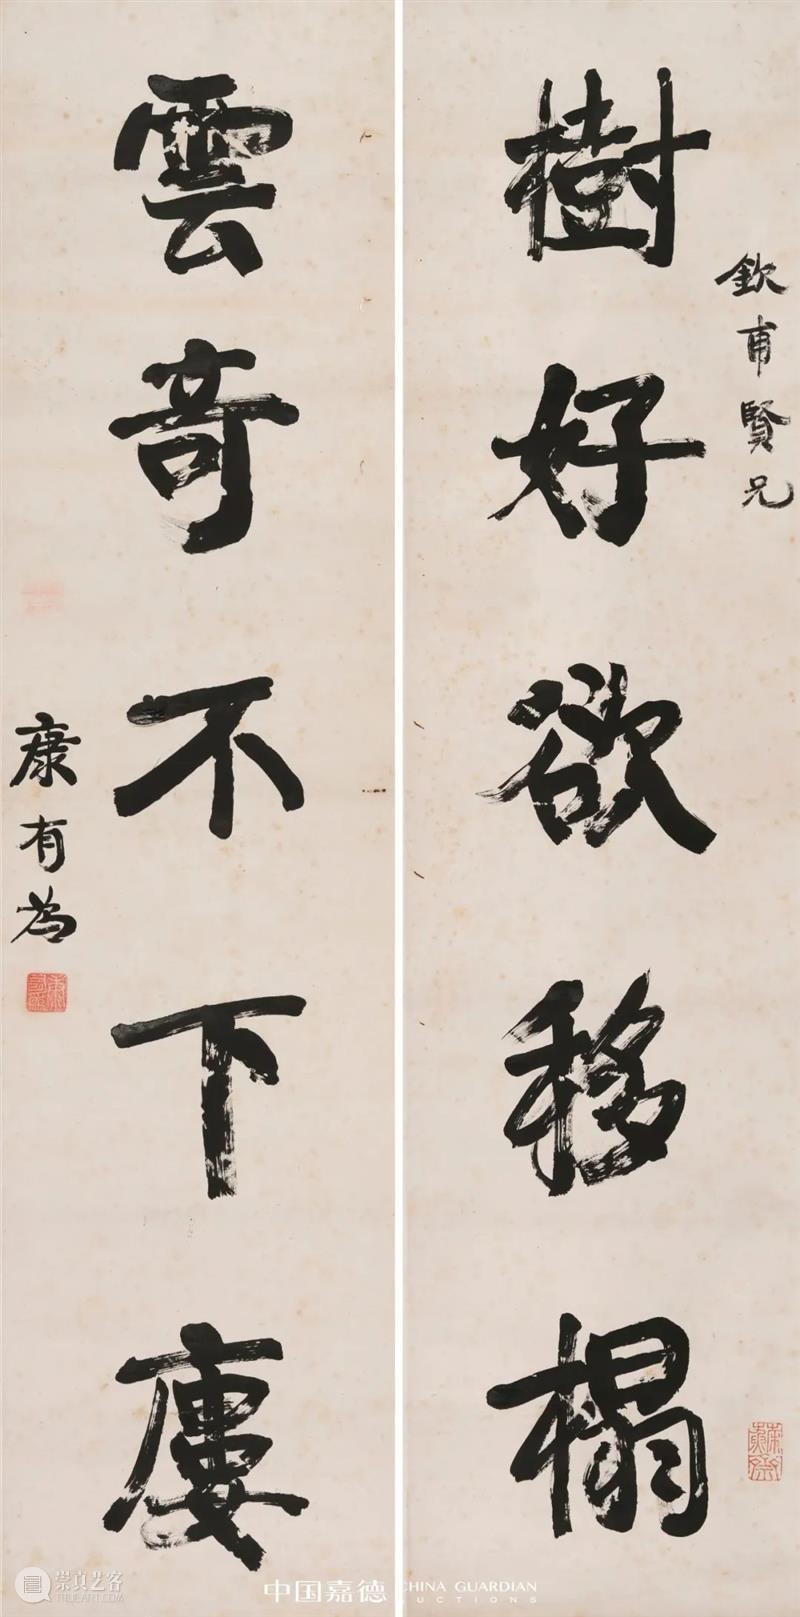 欽甫賢兄
樹好欲移榻
雲奇不下廔
康有為
崇真艺客
中国嘉德
CHINA GUARDIAN
UCTIONS